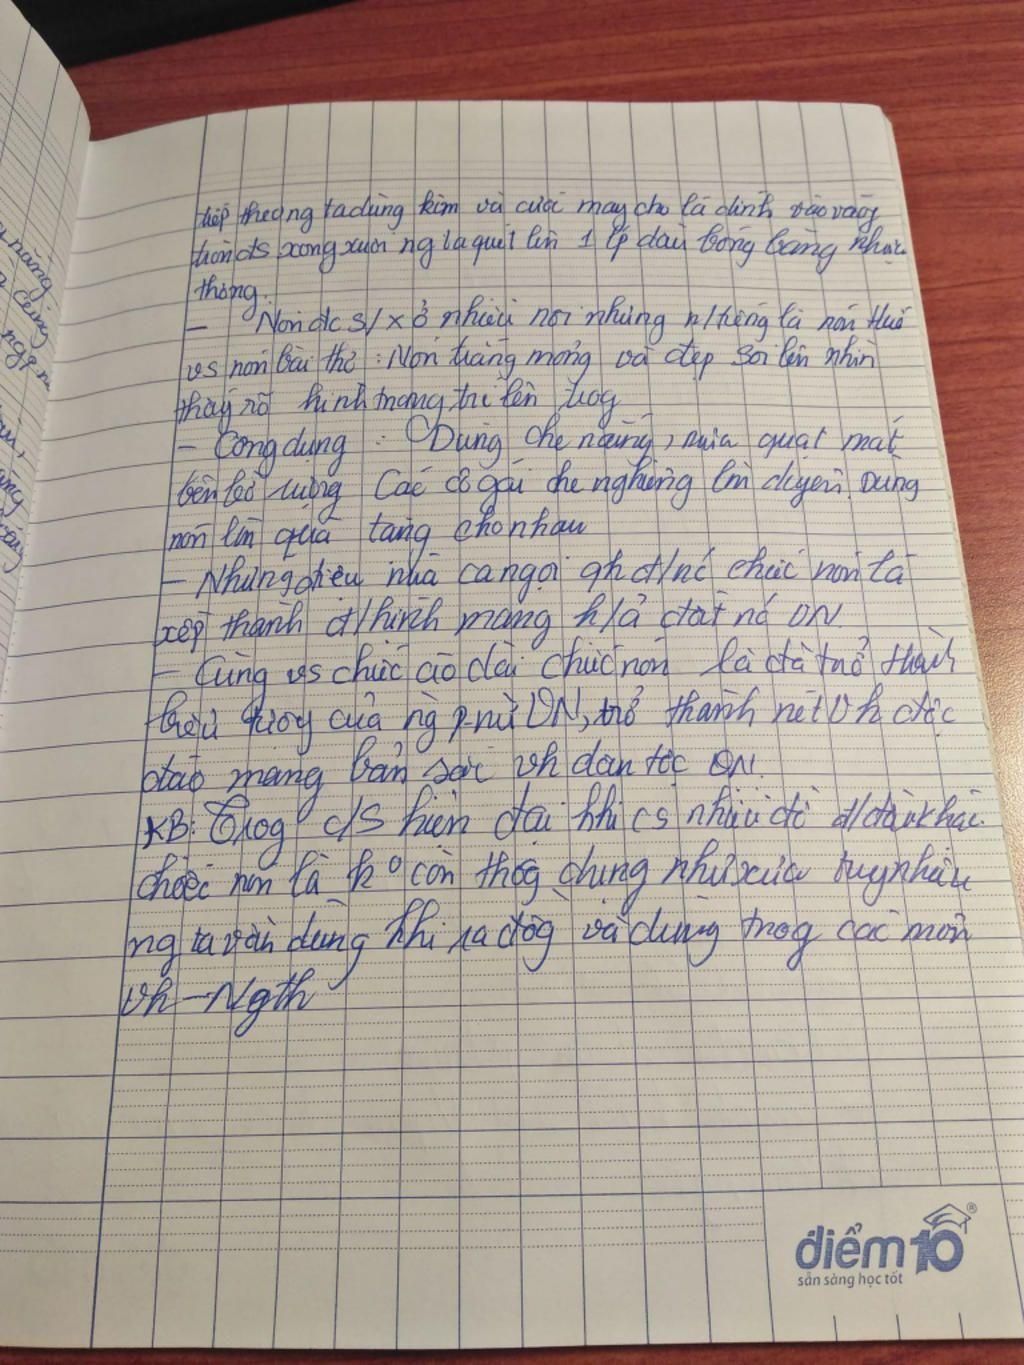 tiếp theo ng ta dùng kim và cước may cho lá dính vào vòng
tròn đs xong xuôi ng ta quét lên 1 lp dầu bóng bằng nhựa
thông.
- Nón đc s/x ở nhiều nơi nhưng n/tiếng là nón Huế
vs nón bài thơ : Nón trắng mỏng và đẹp soi lên nhìn
thấy rõ hình trang trí lên trog
- Công dụng : Dùng che nắng, mưa quạt mát
bên bờ ruộng Các cô gái che nghiêng lm duyên. Dùng
nón lm quà tặng cho nhau
- Những điệu múa ca ngợi qh đ/nc chiếc nón lá
xếp thành đ/hình mang h/ả đất nc VN.
- Cùng vs chiếc áo dài chiếc nón lá đã trở thành
biểu tượng của ng p.nữ VN, trở thành nét Vh độc
đáo mang bản sắc vh dân tộc VN.
KB: Trog c/s hiện đại khi cs nhiều đồ đ/đầu khác
chiếc nón lá k° còn thôg dụng như xưa tuy nhiên
ng ta vẫn dùng khi ra đồg và dùng trog các môn
vh - Ngth
điểm 10 ®
sẵn sàng học tốt